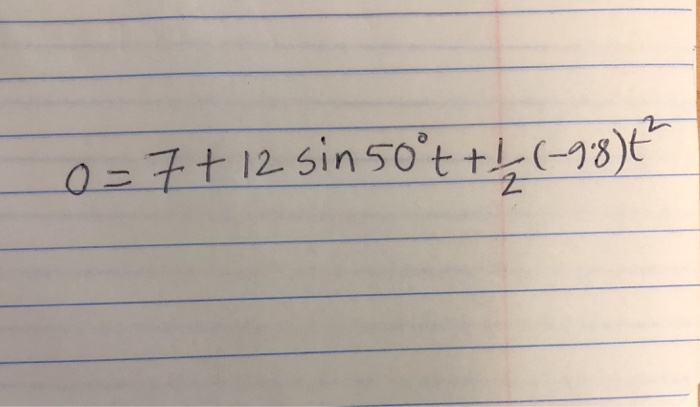 0 = 7 + 12 sin 50° t + 1/2 (-9.8) t²